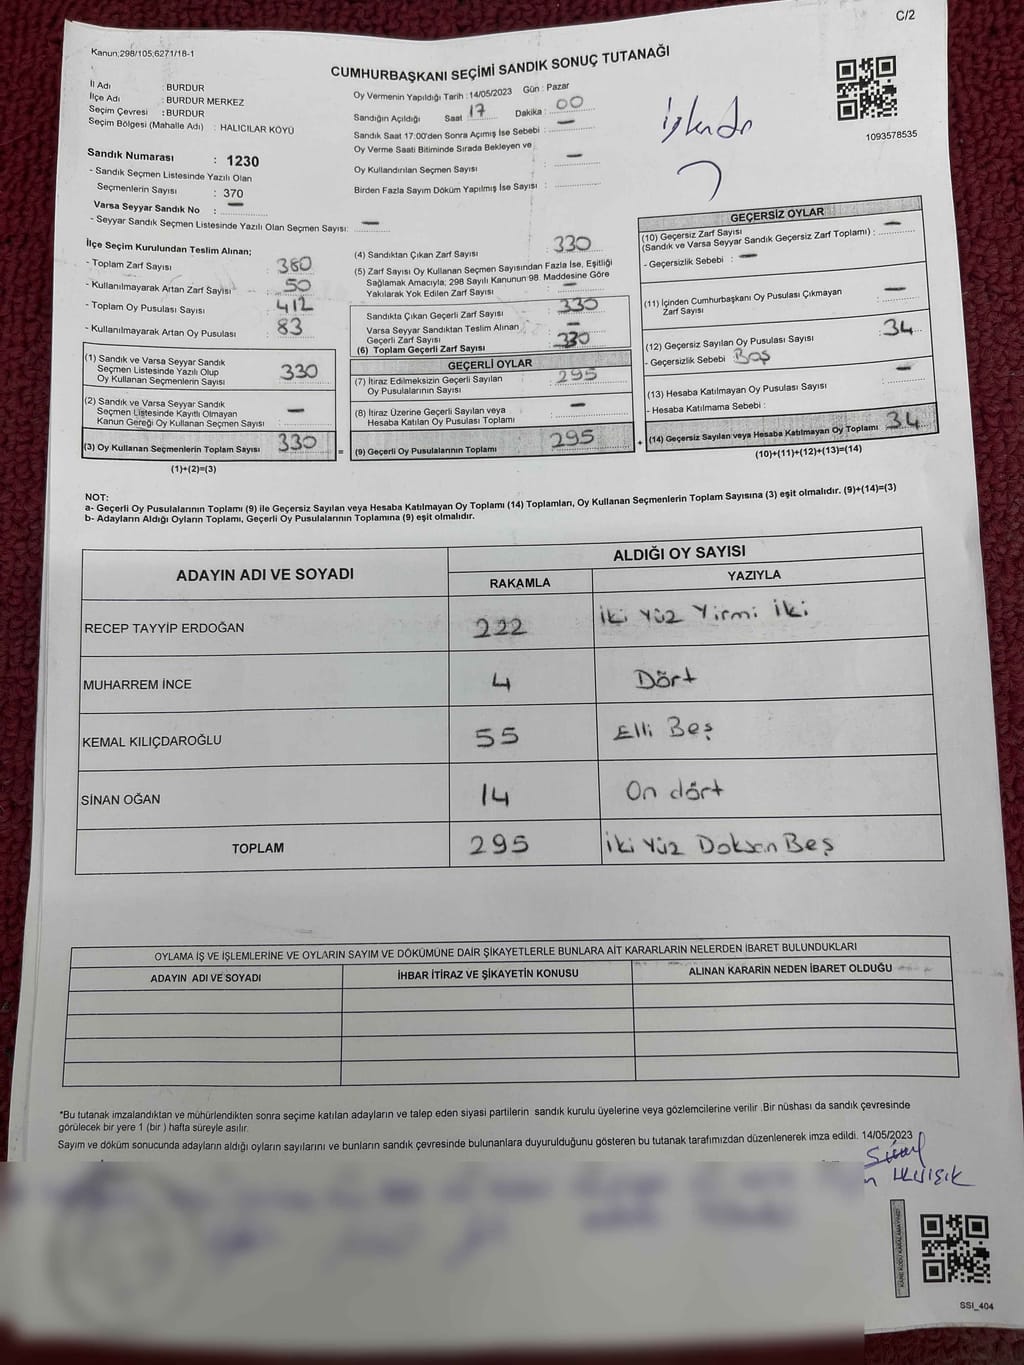 C/2
Kanun;298/105;6271/18-1
CUMHURBAŞKANI SEÇİMİ SANDIK SONUÇ TUTANAĞI
İl Adı : BURDUR
İlçe Adı : BURDUR MERKEZ
Seçim Çevresi : BURDUR
Seçim Bölgesi (Mahalle Adı) : HALICILAR KÖYÜ
Sandık Numarası : 1230
- Sandık Seçmen Listesinde Yazılı Olan
Seçmenlerin Sayısı : 370
Varsa Seyyar Sandık No : —
- Seyyar Sandık Seçmen Listesinde Yazılı Olan Seçmen Sayısı: —
Oy Vermenin Yapıldığı Tarih : 14/05/2023 Gün : Pazar
Sandığın Açıldığı Saat 17 Dakika : 00
Sandık Saat 17:00'den Sonra Açımış İse Sebebi : —
Oy Verme Saati Bitiminde Sırada Bekleyen ve
Oy Kullandırılan Seçmen Sayısı : —
Birden Fazla Sayım Döküm Yapılmış İse Sayısı :
işlendi
1093578535
İlçe Seçim Kurulundan Teslim Alınan;
- Toplam Zarf Sayısı : 380
- Kullanılmayarak Artan Zarf Sayısı : 50
- Toplam Oy Pusulası Sayısı : 412
- Kullanılmayarak Artan Oy Pusulası : 83
(1) Sandık ve Varsa Seyyar Sandık
Seçmen Listesinde Yazılı Olup
Oy Kullanan Seçmenlerin Sayısı : 330
(2) Sandık ve Varsa Seyyar Sandık
Seçmen Listesinde Kayıtlı Olmayan
Kanun Gereği Oy Kullanan Seçmen Sayısı : —
(3) Oy Kullanan Seçmenlerin Toplam Sayısı : 330
(1)+(2)=(3)
(4) Sandıktan Çıkan Zarf Sayısı : 330
(5) Zarf Sayısı Oy Kullanan Seçmen Sayısından Fazla İse, Eşitliği
Sağlamak Amacıyla; 298 Sayılı Kanunun 98. Maddesine Göre
Yakılarak Yok Edilen Zarf Sayısı : —
Sandıkta Çıkan Geçerli Zarf Sayısı : 330
Varsa Seyyar Sandıktan Teslim Alınan
Geçerli Zarf Sayısı : —
(6) Toplam Geçerli Zarf Sayısı : 330
GEÇERLİ OYLAR
(7) İtiraz Edilmeksizin Geçerli Sayılan
Oy Pusulalarının Sayısı : 295
(8) İtiraz Üzerine Geçerli Sayılan veya
Hesaba Katılan Oy Pusulası Toplamı : —
= (9) Geçerli Oy Pusulalarının Toplamı : 295
GEÇERSİZ OYLAR
(10) Geçersiz Zarf Sayısı
(Sandık ve Varsa Seyyar Sandık Geçersiz Zarf Toplamı) : —
- Geçersizlik Sebebi : —
(11) İçinden Cumhurbaşkanı Oy Pusulası Çıkmayan
Zarf Sayısı : —
(12) Geçersiz Sayılan Oy Pusulası Sayısı : 34
- Geçersizlik Sebebi Boş
(13) Hesaba Katılmayan Oy Pusulası Sayısı : —
- Hesaba Katılmama Sebebi :
+ (14) Geçersiz Sayılan veya Hesaba Katılmayan Oy Toplamı : 34
(10)+(11)+(12)+(13)=(14)
NOT:
a- Geçerli Oy Pusulalarının Toplamı (9) ile Geçersiz Sayılan veya Hesaba Katılmayan Oy Toplamı (14) Toplamları, Oy Kullanan Seçmenlerin Toplam Sayısına (3) eşit olmalıdır. (9)+(14)=(3)
b- Adayların Aldığı Oyların Toplamı, Geçerli Oy Pusulalarının Toplamına (9) eşit olmalıdır.
ADAYIN ADI VE SOYADI ALDIĞI OY SAYISI
RAKAMLA YAZIYLA
RECEP TAYYİP ERDOĞAN 222 İki Yüz Yirmi İki
MUHARREM İNCE 4 Dört
KEMAL KILIÇDAROĞLU 55 Elli Beş
SİNAN OĞAN 14 On dört
TOPLAM 295 İki Yüz Doksan Beş
OYLAMA İŞ VE İŞLEMLERİNE VE OYLARIN SAYIM VE DÖKÜMÜNE DAİR ŞİKAYETLERLE BUNLARA AİT KARARLARIN NELERDEN İBARET BULUNDUKLARI
ADAYIN ADI VE SOYADI İHBAR İTİRAZ VE ŞİKAYETİN KONUSU ALINAN KARARIN NEDEN İBARET OLDUĞU
*Bu tutanak imzalandıktan ve mühürlendikten sonra seçime katılan adayların ve talep eden siyasi partilerin sandık kurulu üyelerine veya gözlemcilerine verilir .Bir nüshası da sandık çevresinde
görülecek bir yere 1 (bir ) hafta süreyle asılır.
Sayım ve döküm sonucunda adayların aldığı oyların sayılarını ve bunların sandık çevresinde bulunanlara duyurulduğunu gösteren bu tutanak tarafımızdan düzenlenerek imza edildi. 14/05/2023
SSI_404